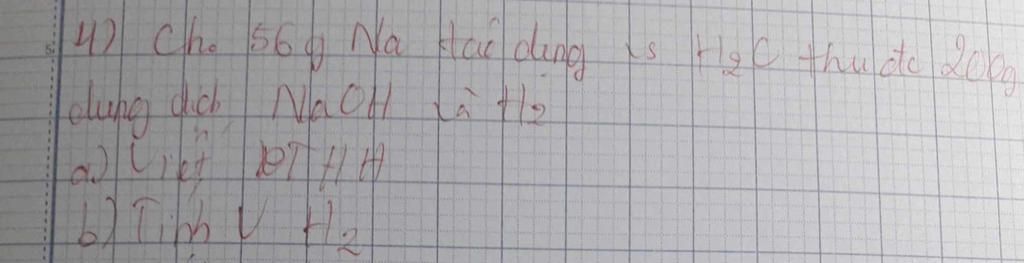 4) Cho 56g Na tác dụng vs H2O thu đc 200g
dung dịch NaOH và H2
a) Viết PTHH
b) Tính V H2